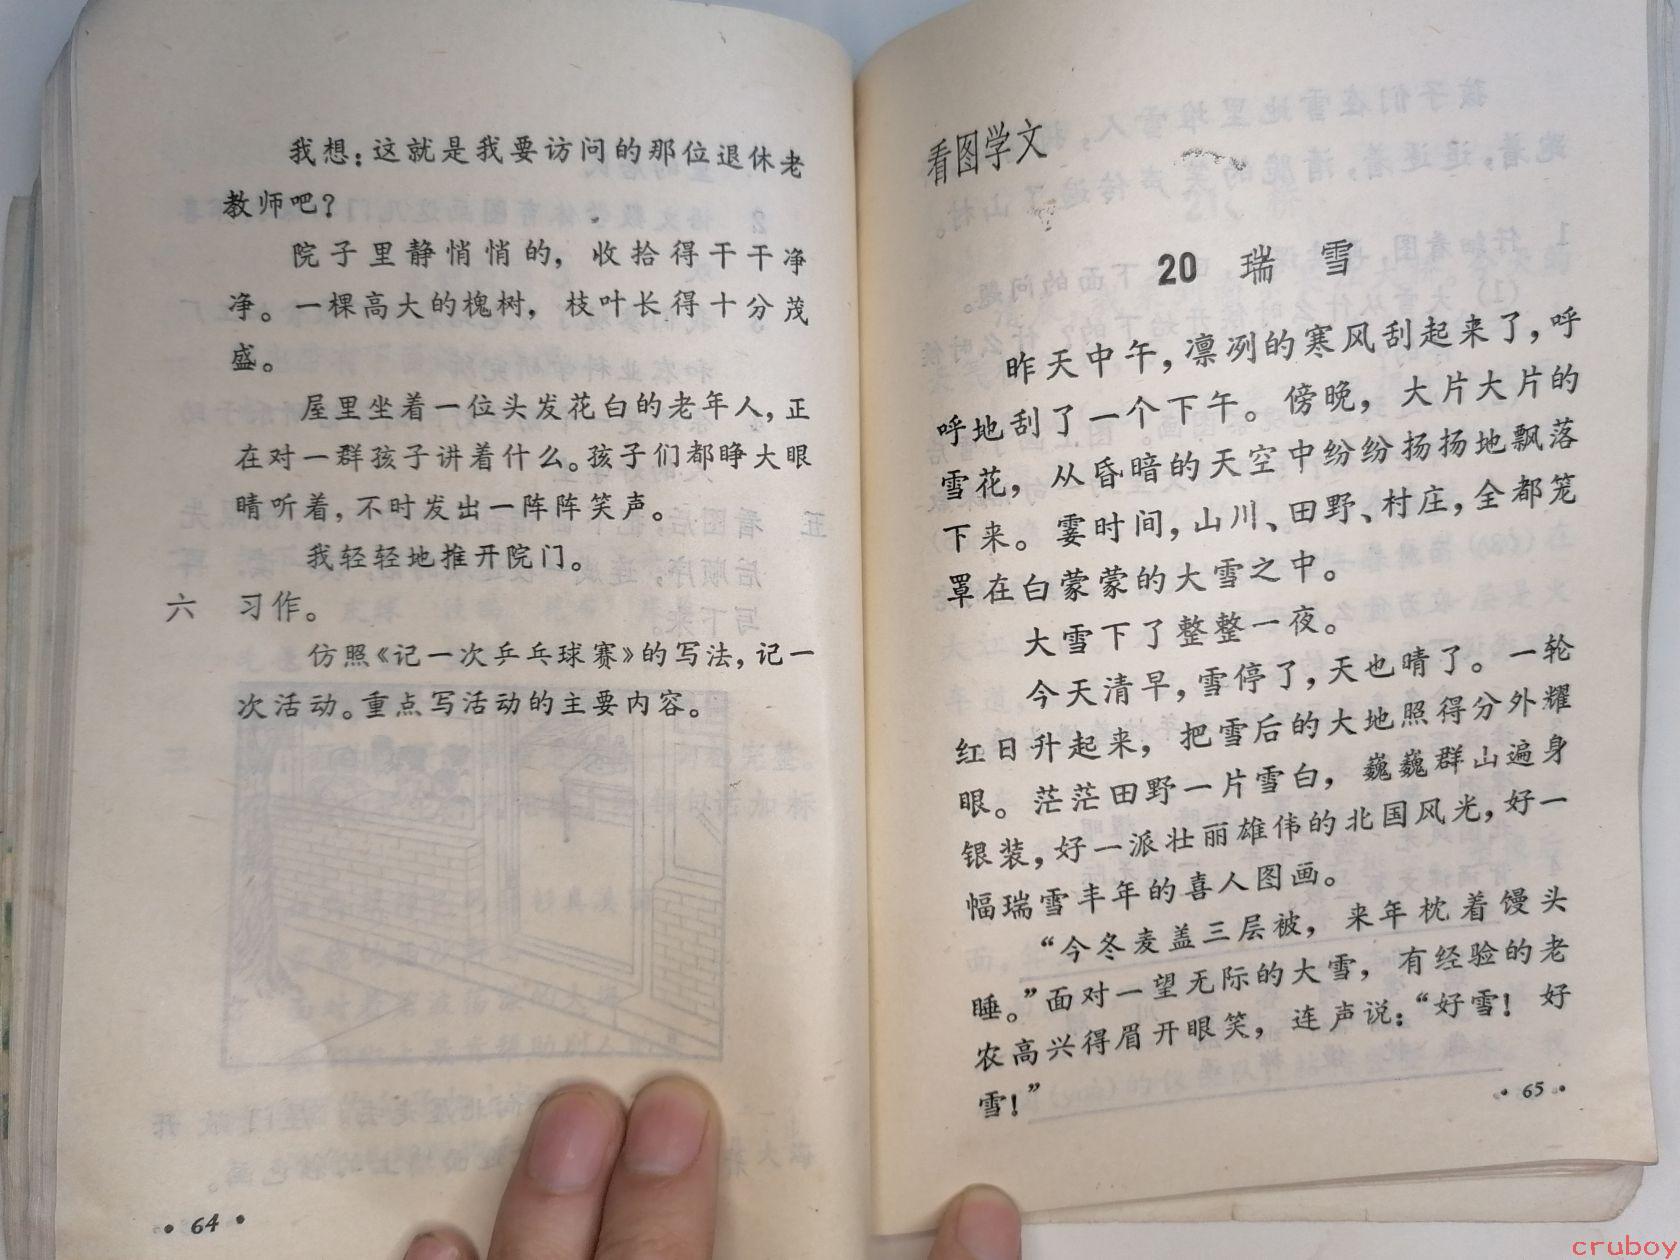 我想：这就是我要访问的那位退休老
教师吧？
院子里静悄悄的，收拾得干干净
净。一棵高大的槐树，枝叶长得十分茂
盛。
屋里坐着一位头发花白的老年人，正
在对一群孩子讲着什么。孩子们都睁大眼
睛听着，不时发出一阵阵笑声。
我轻轻地推开院门。
六 习作。
仿照《记一次乒乓球赛》的写法，记一
次活动。重点写活动的主要内容。
·64·
看图学文
20 瑞雪
昨天中午，凛冽的寒风刮起来了，呼
呼地刮了一个下午。傍晚，大片大片的
雪花，从昏暗的天空中纷纷扬扬地飘落
下来。霎时间，山川、田野、村庄，全都笼
罩在白蒙蒙的大雪之中。
大雪下了整整一夜。
今天清早，雪停了，天也晴了。一轮
红日升起来，把雪后的大地照得分外耀
眼。茫茫田野一片雪白，巍巍群山遍身
银装，好一派壮丽雄伟的北国风光，好一
幅瑞雪丰年的喜人图画。
“今冬麦盖三层被，来年枕着馒头
睡。”面对一望无际的大雪，有经验的老
农高兴得眉开眼笑，连声说：“好雪！好
雪！”
·65·
cruboy